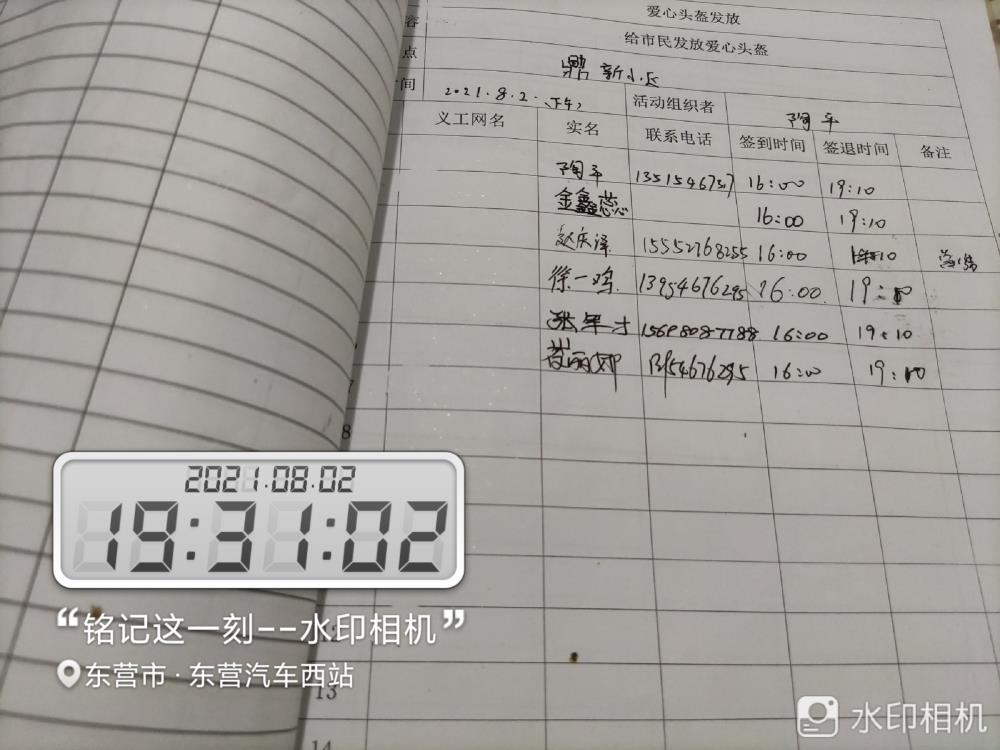 爱心头盔发放
容 给市民发放爱心头盔
点 鼎新小区
间 2021.8.2.下午, 活动组织者 陶平
义工网名 实名 联系电话 签到时间 签退时间 备注
陶平 13515467317 16:00 19:10
金鑫蕊 16:00 19:10
赵庆泽 15552768255 16:00
徐一鸣 13954676295 16:00
张军才 15698087788 16:00 19:10
16:00
7
8
2021.08.02
19:31:02
“铭记这一刻--水印相机”
东营市·东营汽车西站
13
14
水印相机